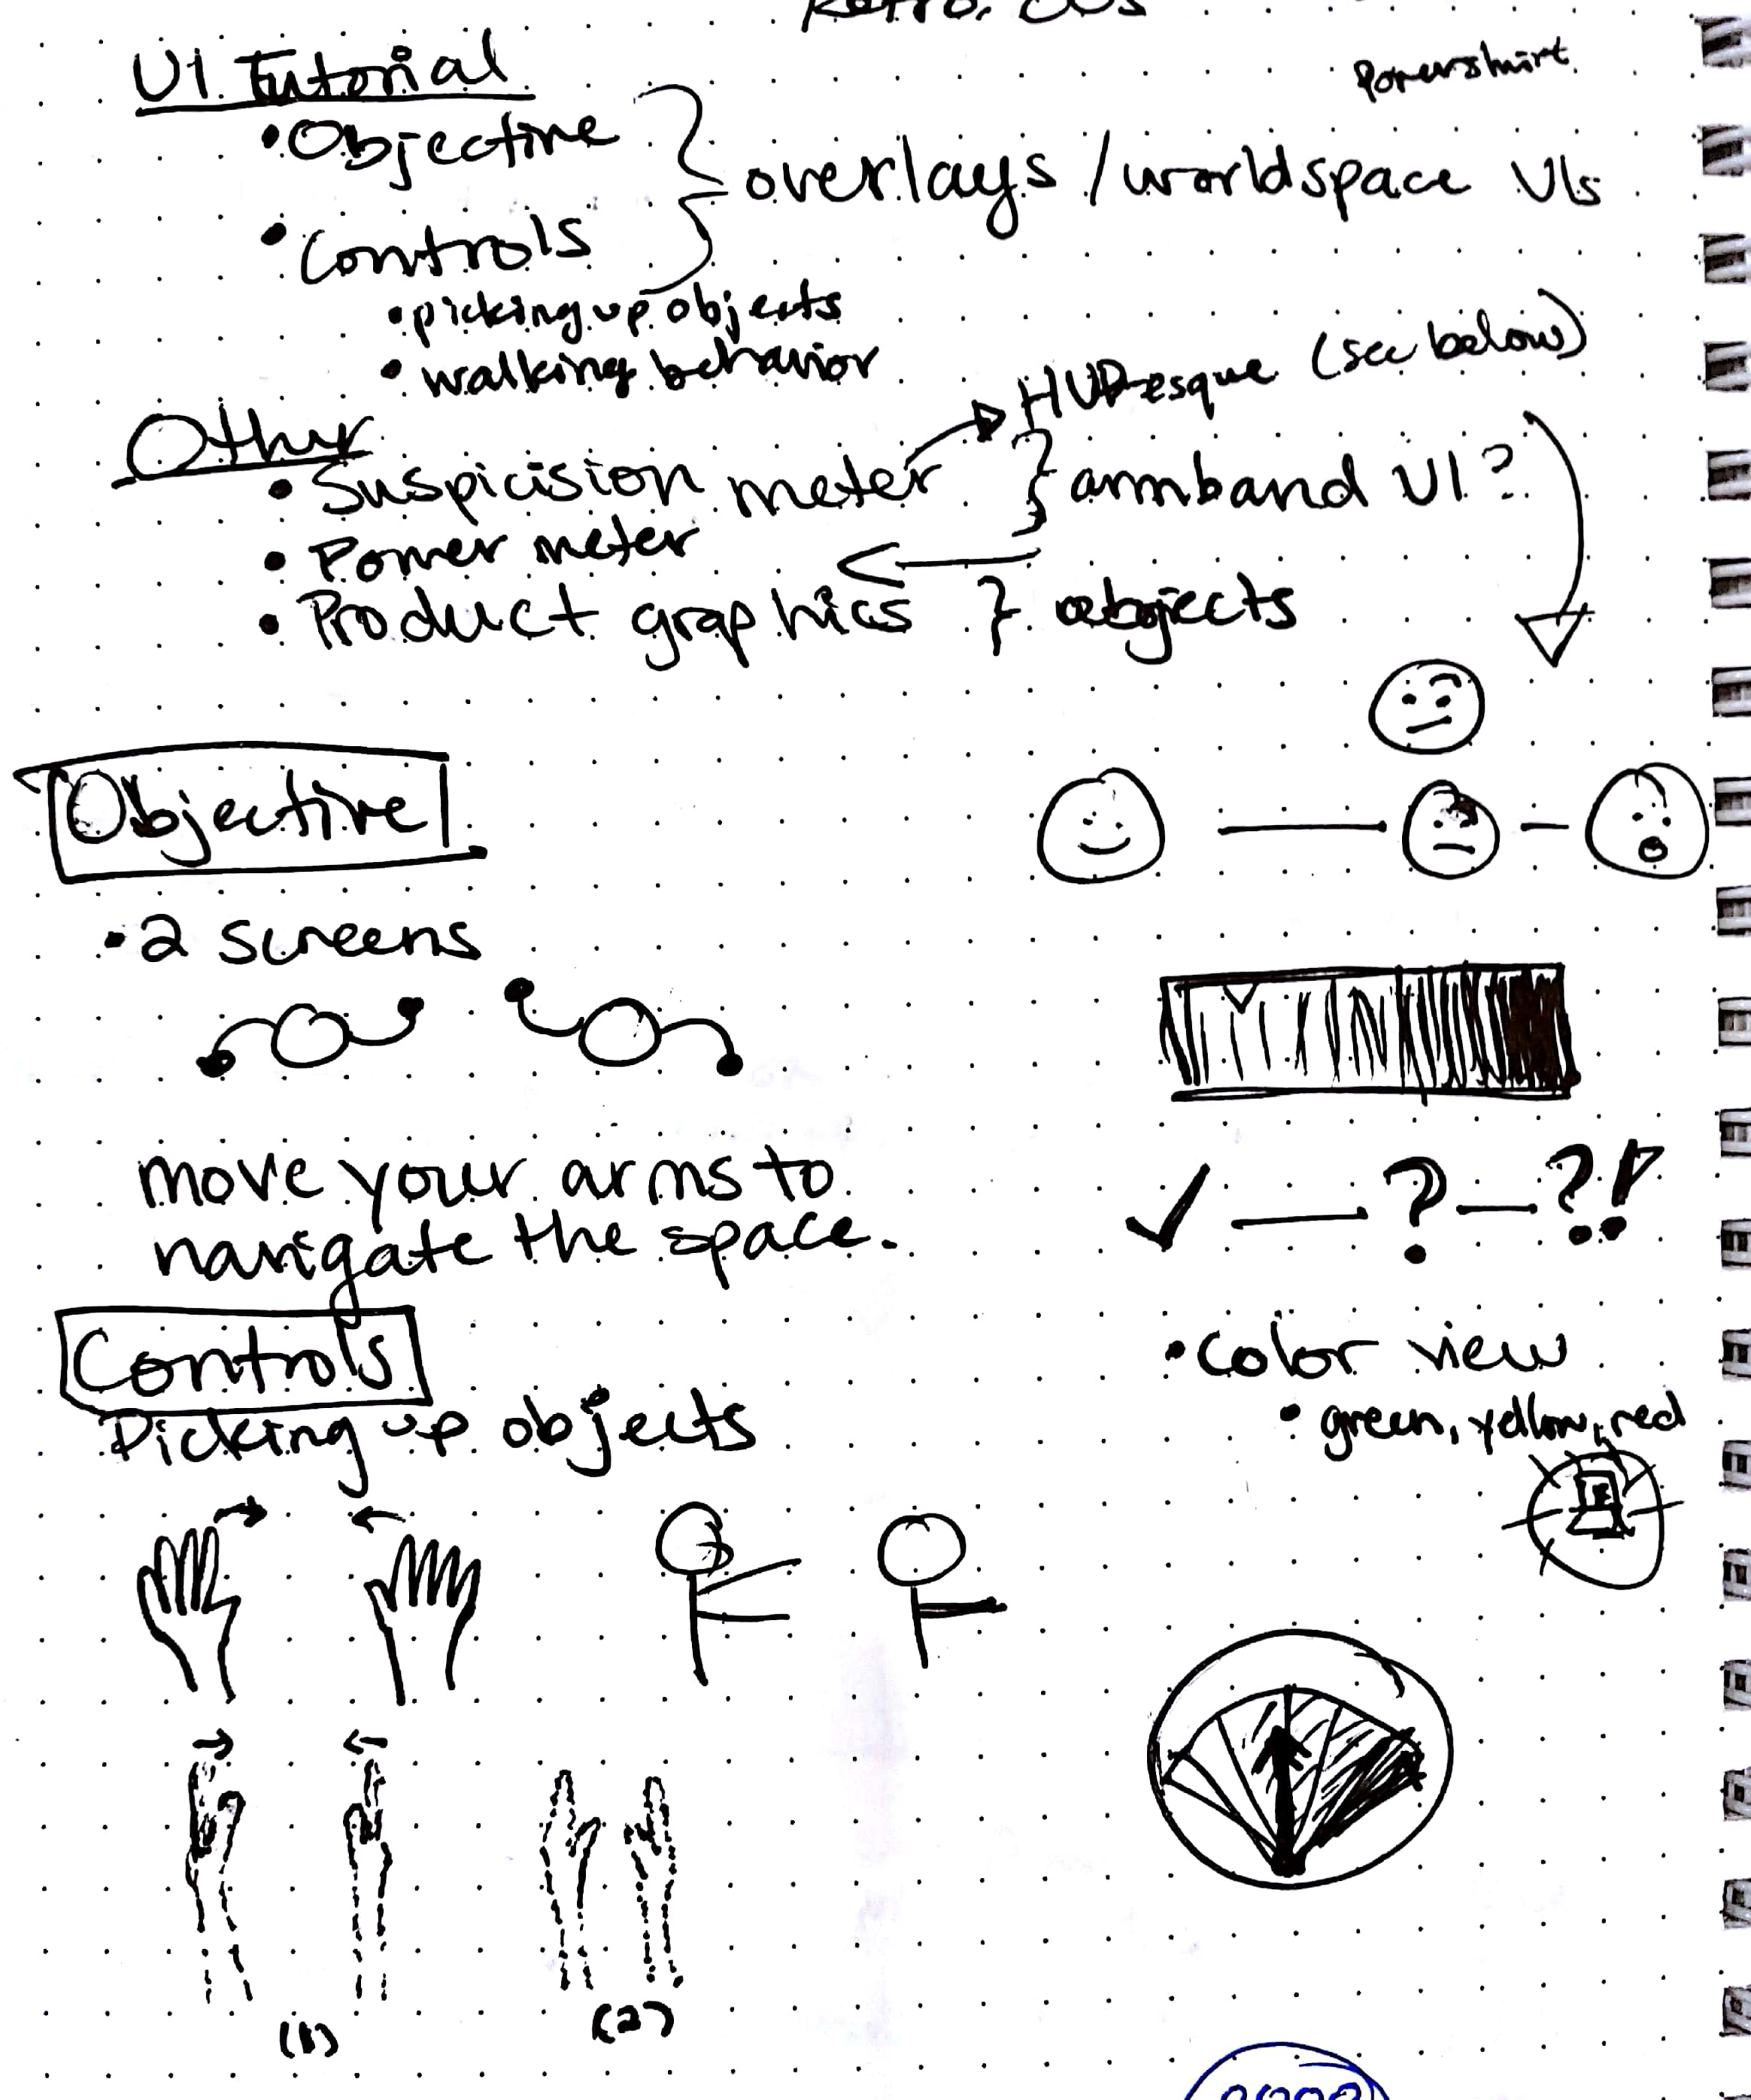 UI Tutorial
• Objective
• Controls
overlays / worldspace UIs
• picking up objects
• walking behavior
Other
HUD-esque (see below)
• Suspicision meter
} armband UI?
• Power meter
• Product graphics } objects
Objective
• 2 screens
move your arms to
navigate the space.
✓ — ? — ?!
• color view
• green, yellow, red
Controls
Picking up objects
(1)
(2)